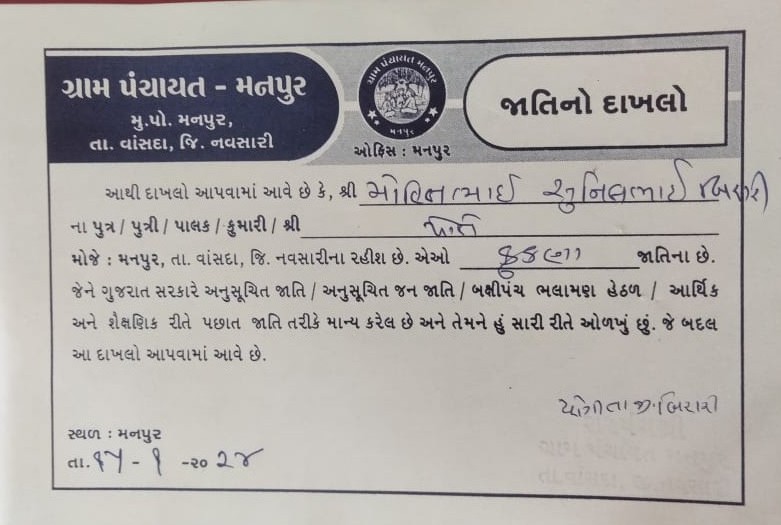 ગ્રામ પંચાયત - મનપુર
મુ.પો. મનપુર,
તા. વાંસદા, જિ. નવસારી
ગ્રામ પંચાયત મનપુર
મનપુર
ઓફિસ : મનપુર
જાતિનો દાખલો
આથી દાખલો આપવામાં આવે છે કે, શ્રી મોહિતભાઈ સુનિલભાઈ બિરારી
ના પુત્ર / પુત્રી / પાલક / કુમારી / શ્રી પોતે
મોજે : મનપુર, તા. વાંસદા, જિ. નવસારીના રહીશ છે. એઓ કુકણા જાતિના છે.
જેને ગુજરાત સરકારે અનુસૂચિત જાતિ / અનુસૂચિત જન જાતિ / બક્ષીપંચ ભલામણ હેઠળ / આર્થિક
અને શૈક્ષણિક રીતે પછાત જાતિ તરીકે માન્ય કરેલ છે અને તેમને હું સારી રીતે ઓળખું છું. જે બદલ
આ દાખલો આપવામાં આવે છે.
યોગીતા જી. બિરારી
સ્થળ : મનપુર
તા. ૧૫ - ૧ -૨૦ ૨૪